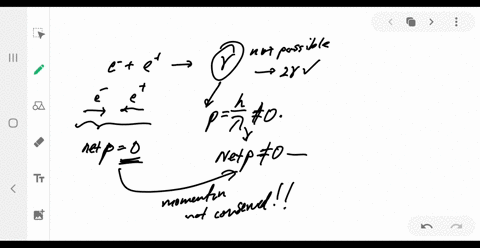 e⁻ + e⁺ → γ not possible
→ 2γ ✓
e⁻ e⁺
p = h/λ ≠ 0.
net p = 0
Net p ≠ 0 —
momentum
not conserved!!
Tт